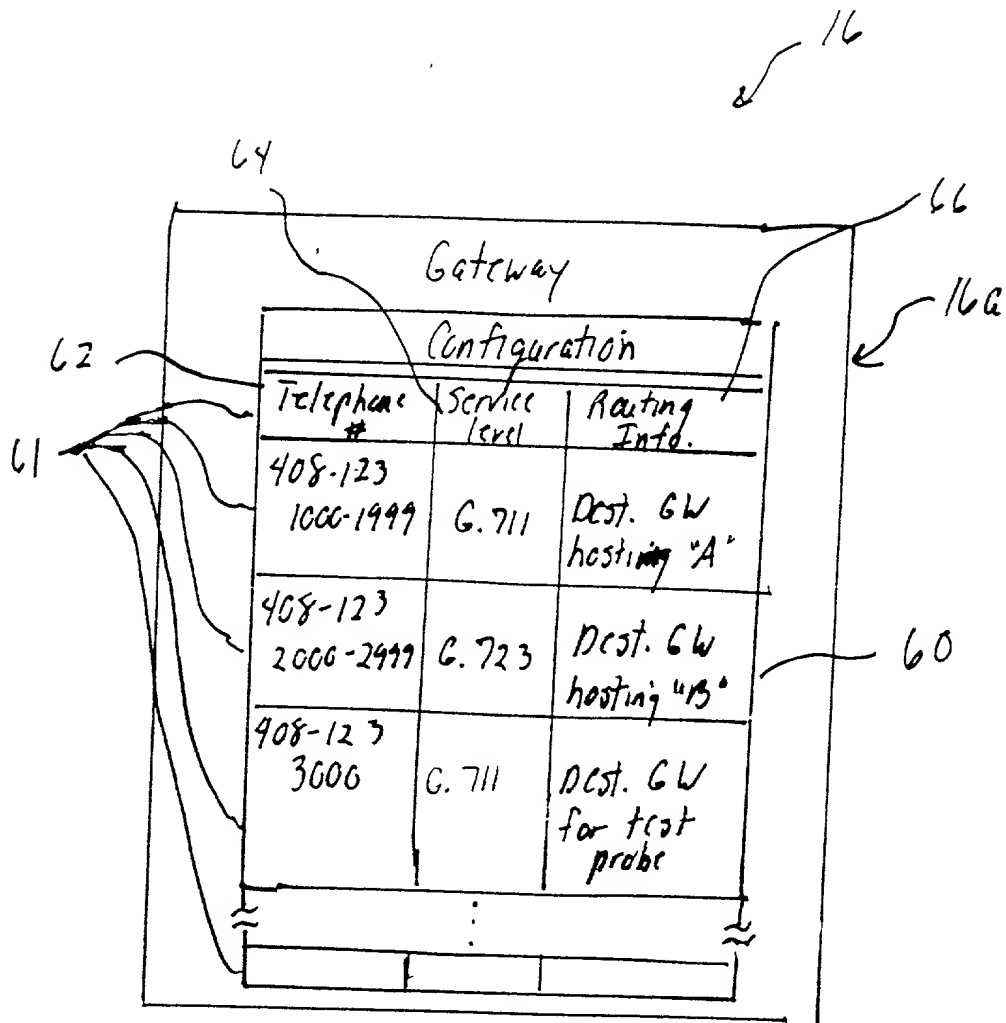 16
64
66
Gateway
16a
Configuration
62
Telephone # Service level Routing Info.
61
408-123 1000-1999 G.711 Dest. GW hosting "A"
408-123 2000-2999 G.723 Dest. GW hosting "B"
60
408-123 3000 G.711 Dest. GW for test probe